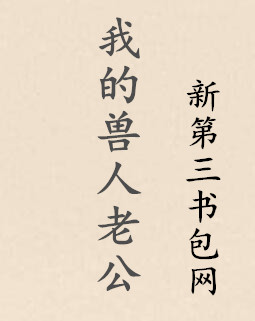 我的兽人老公
新第三书包网